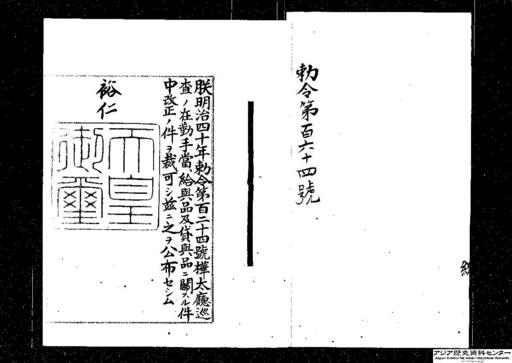 勅令第百六十四號
朕明治四十年勅令第百二十四號樺太廳巡
査ノ在勤手當、給與品及貸與品ニ關スル件
中改正ノ件ヲ裁可シ茲ニ之ヲ公布セシム
裕仁
天皇
御璽
アジア歴史資料センター
Japan Center for Asian Historical Records